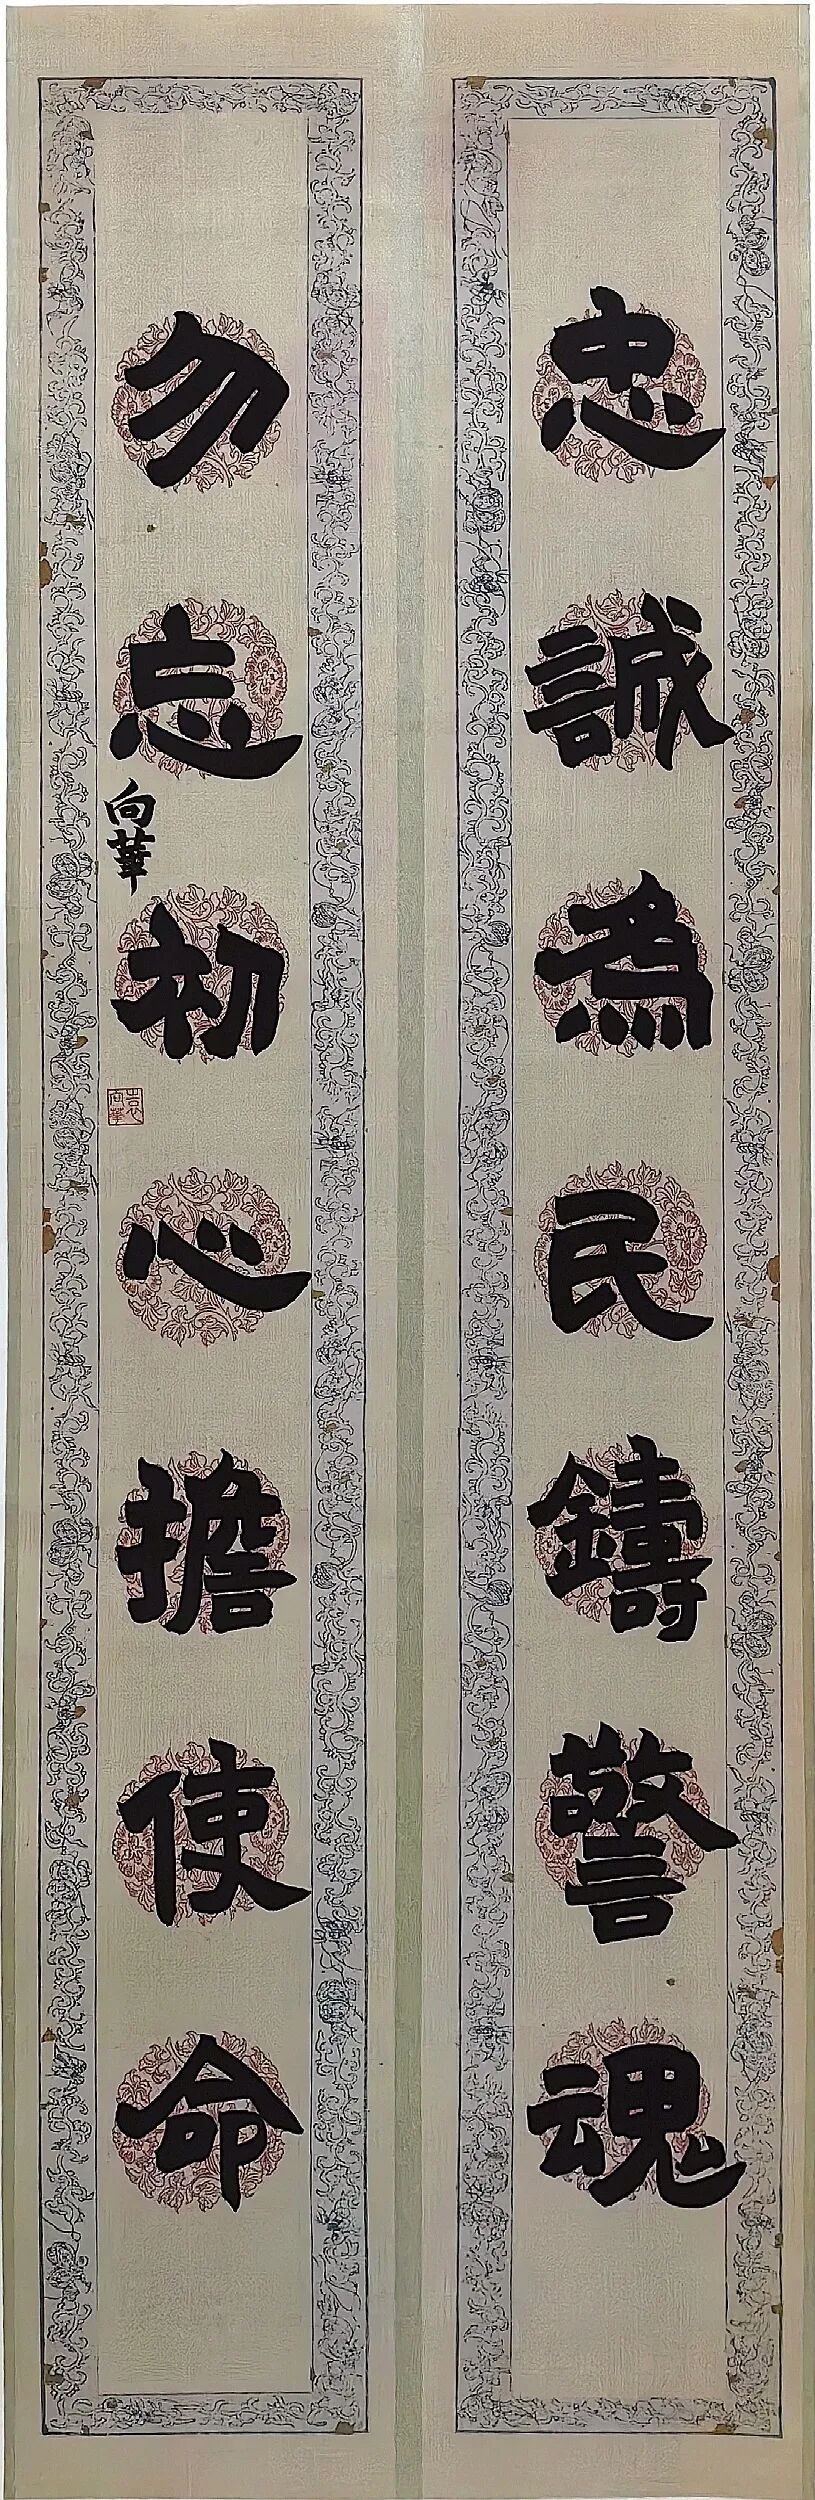 忠誠為民鑄警魂
勿忘初心擔使命
向華